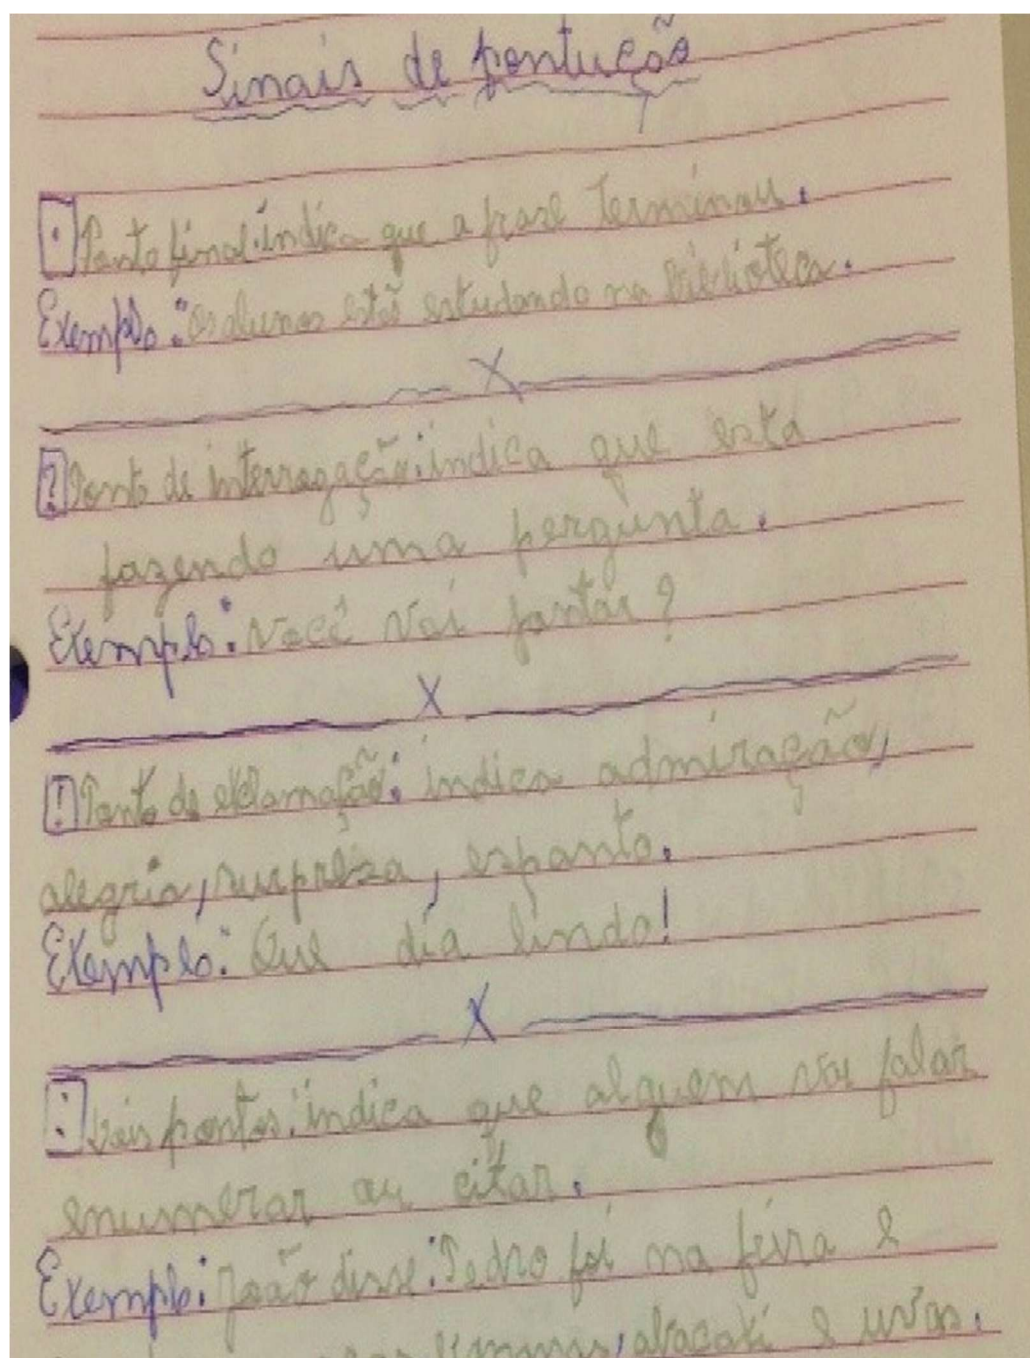 Sinais de pontução
. Ponto final: indica que a frase terminou.
Exemplo: os alunos estão estudando na biblioteca.
X
? Ponto de interragação: indica que está
fazendo uma pergunta.
Exemplo: Você vai jantar?
X
! Ponto de exclamação: indica admiração,
alegria, surpresa, espanto.
Exemplo: Que dia lindo!
X
: Dois pontos: indica que alguem vai falar
enumerar ou citar.
Exemplo: João disse: Pedro foi na feira e
abacati e uvas.